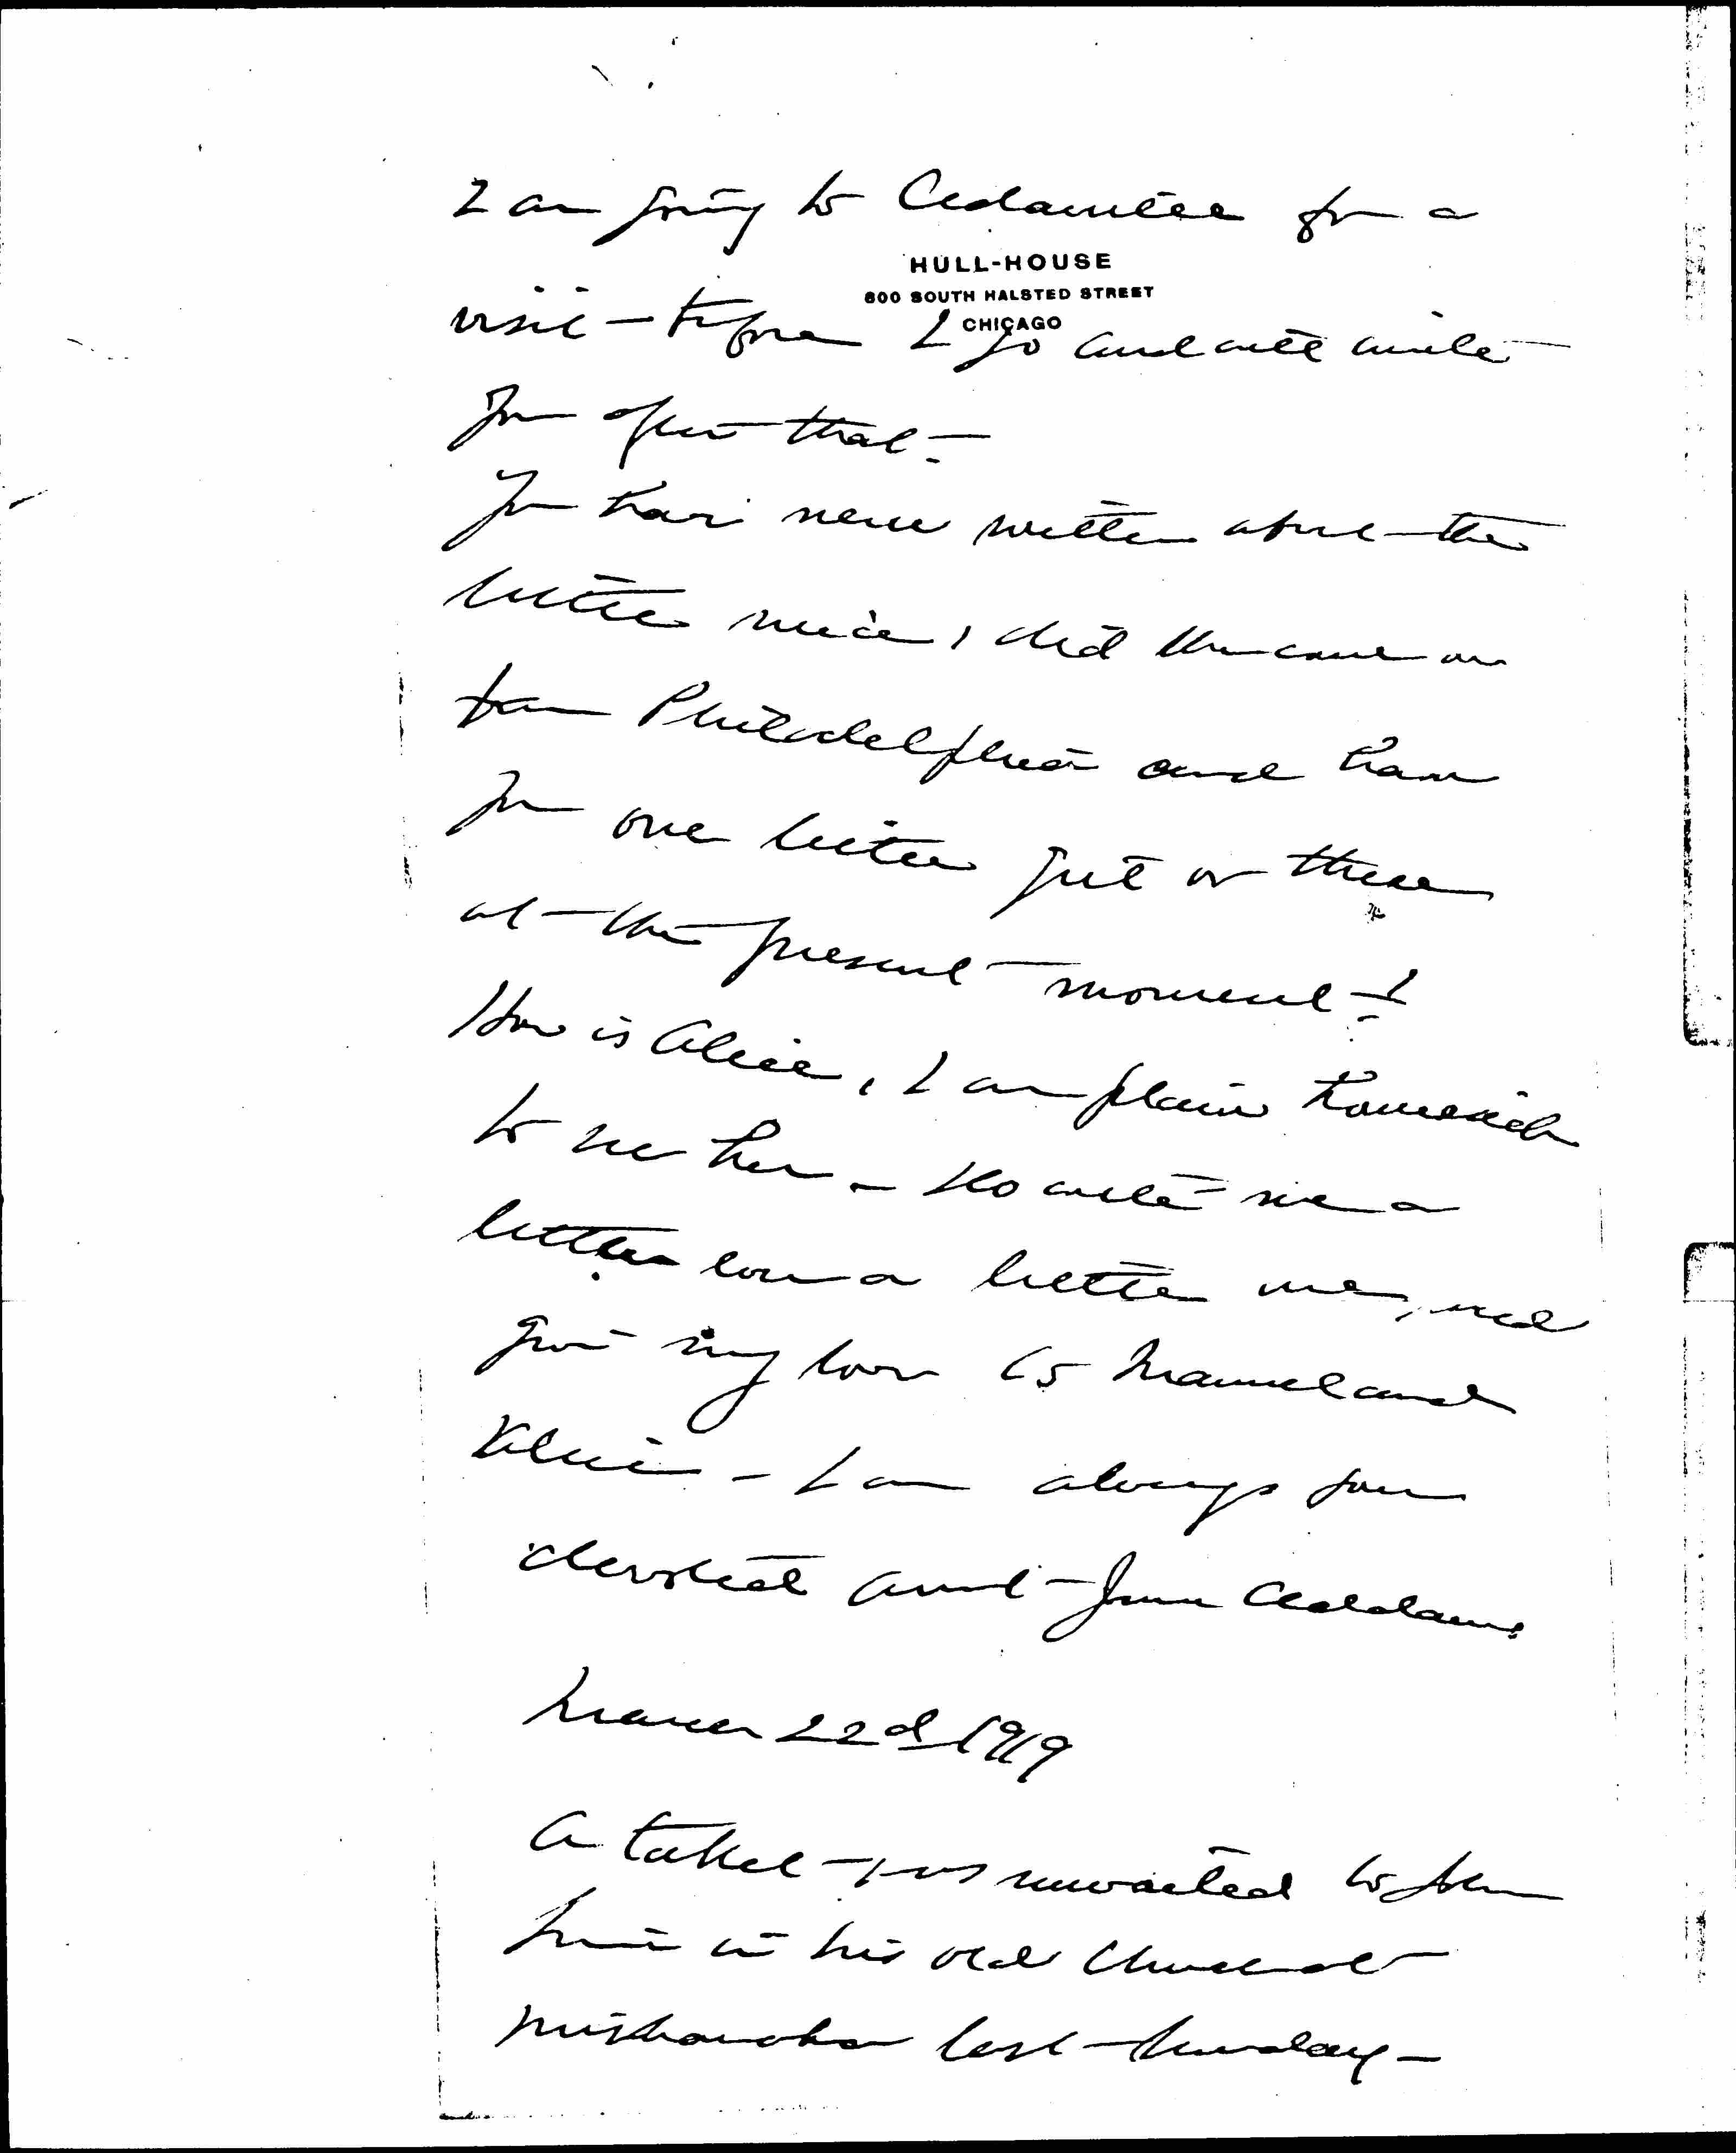 I am going to Cedarville for a
HULL-HOUSE
800 SOUTH HALSTED STREET
CHICAGO
visit before I go and will write
you after that.
You have never written about the
little niece, did she come on
from Philadelphia and have
you one little girl or three
at the present moment?
How is Alice, I am plain homesick
to see her – do write me a
letter  a little one, and
give my love to Marcel and
 – I am always your
devoted aunt Jane Addams
March 22d 1919
A tablet was unveiled to
 in his old Church at
Mishawaka last Sunday –